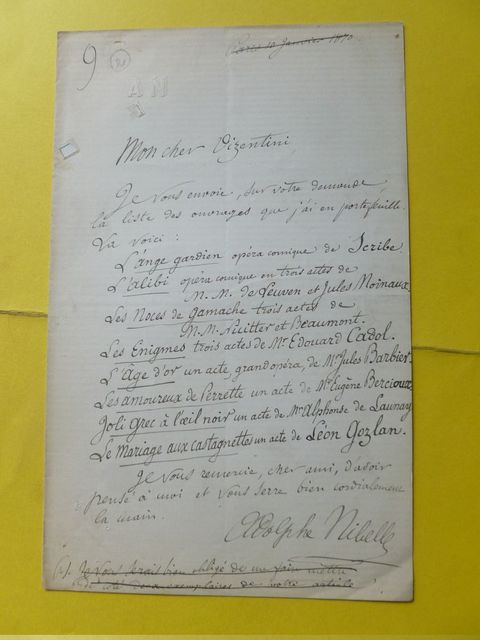 9
Paris 10 Janvier 1870.
AN
Mon cher Vizentini,
Je vous envoie, sur votre demande,
la liste des ouvrages que j'ai en portefeuille.
La voici :
L'Ange gardien opéra comique de Scribe
L'Alibi opéra comique en trois actes de
M. M. de Leuven et Jules Moinaux.
Les Noces de Gamache trois actes de
M. M. Nuitter et Beaumont.
Les Enigmes trois actes de Mr Edouard Cadol.
L'Age d'or un acte grand opéra, de Mr Jules Barbier.
Les amoureux de Perrette un acte de Mr Eugène Bercioux
Joli grec à l'œil noir un acte de Mr Alphonse de Launay
Le Mariage aux castagnettes un acte de Léon Gozlan.
Je vous remercie, cher ami, d'avoir
pensé à moi et vous serre bien cordialement
la main.
Adolphe Nibelle
Je vous serais bien obligé de me faire mettre
de côté deux exemplaires de votre article